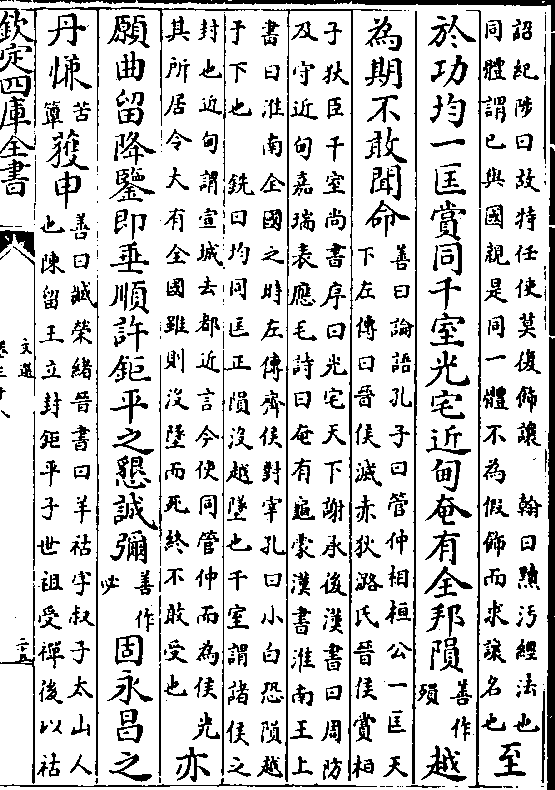 詔紀陟曰故特任使莫復飾讓 翰曰隳汚經法也
同體謂已與國親是同一體不為假飾而求讓名也
至
於功均一匡賞同千室光宅近甸奄有全邦隕善作殞越
為期不敢聞命
善曰論語孔子曰管仲相桓公一匡天
下左傳曰晉侯滅赤狄潞氏晉侯賞相
子狄臣千室尚書序曰光宅天下謝承後漢書曰周防
及守近甸嘉瑞表應毛詩曰奄有龜蒙漢書淮南王上
書曰淮南全國之時左傳齊侯對宰孔曰小白恐隕越
于下也 銑曰均同匡正隕沒越墜也千室謂諸侯之
封也近甸謂宣城去都近言今使同管仲而為侯光
其所居令大有全國雖則沒墜而死終不敢受也
亦
願曲留降鑒即垂順許鉅平之懇誠彌善作必固永昌之
丹慊苦簟獲申
善曰臧榮緒晉書曰羊祜字叔子太山人
也陳留王立封鉅平子世祖受禪後以祜
欽定四庫全書
文選
卷三十八